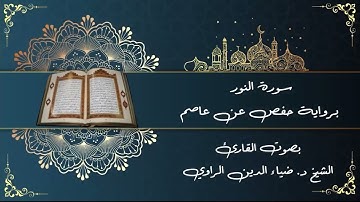 سورة النور
برواية حفص عن عاصم
بصوت القارئ
الشيخ د. ضياء الدين الراوي